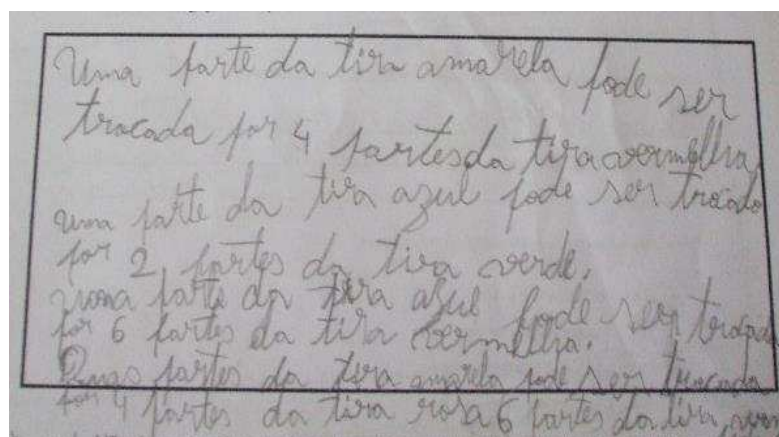 Uma parte da tira amarela pode ser
trocada por 4 partes da tira vermelha
uma parte da tira azul pode ser trocada
por 2 partes da tira verde.
uma parte da tira azul pode ser trocada
por 6 partes da tira vermelha.
partes da tira amarela pode ser trocada
por 4 partes da tira rosa 6 partes da tira